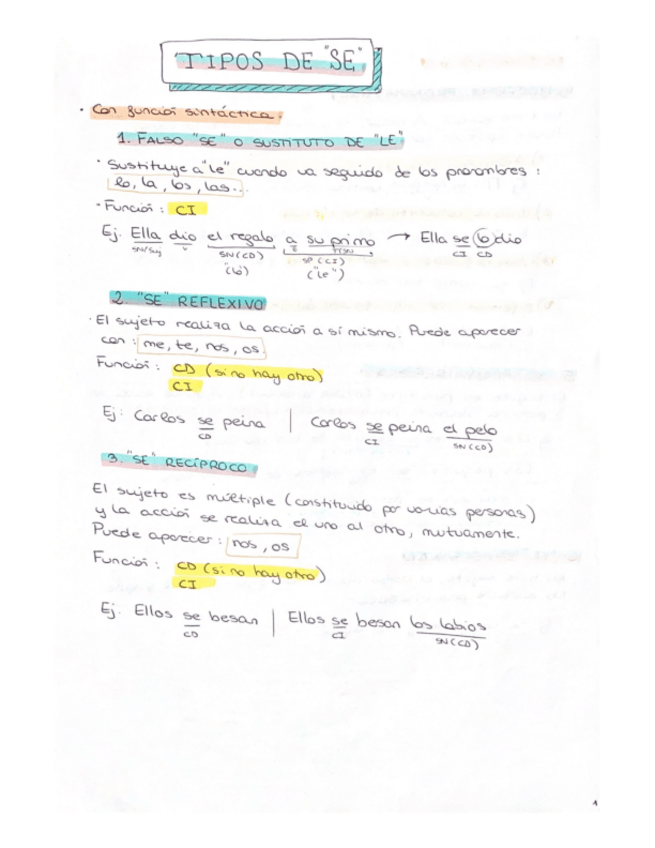 TIPOS DE "SE"
· Con función sintáctica.
1. FALSO "SE" O SUSTITUTO DE "LE"
· Sustituye a "le" cuando va seguido de los pronombres :
lo, la, los, las..
· Función : CI
Ej. Ella dio el regalo a su primo → Ella se lo dio
SN/Suj V SN(CD) E T/SN CI CD
SP (CI)
("lo") ("le")
2. "SE" REFLEXIVO
· El sujeto realiza la acción a sí mismo. Puede aparecer
con : me, te, nos, os.
Función : CD (si no hay otro)
CI
Ej: Carlos se peina | Carlos se peina el pelo
CD CI SN(CD)
3. "SE" RECÍPROCO
El sujeto es múltiple (constituido por varias personas)
y la acción se realiza el uno al otro, mutuamente.
Puede aparecer : nos, os
Función : CD (si no hay otro)
CI
Ej. Ellos se besan | Ellos se besan los labios
CD CI SN(CD)
1